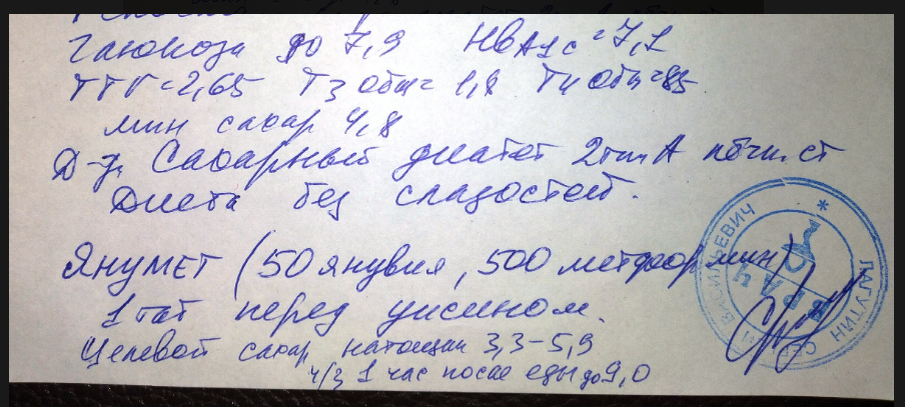 Глюкоза до 7,9 HbA1c=7,1
ТТГ=2,65 Т3 общ= 1,8 Т4 общ=85
мин сахар 4,8
Д-з Сахарный диабет 2тип
Диета без сладостей.
ЯНУМЕТ (50 янувия, 500 метформин)
1 таб перед ужином.
Целевой сахар натощак 3,3-5,9
ч/з 1 час после еды до 9,0
ЛАГУТИН СЕРГЕЙ ВАСИЛЬЕВИЧ
ВРАЧ